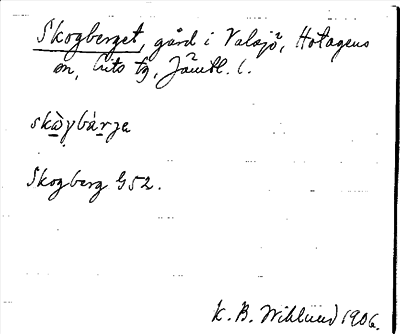 Skogberget, gård i Valsjö, Hotagens
sn, Lits tg, Jämtl. l.
skὼγbárje
Skogberg G52.
K. B. Wiklund 1906.